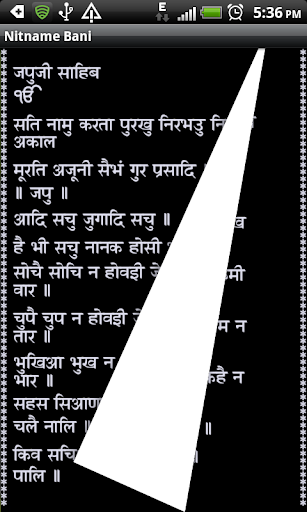 5:36 PM
Nitname Bani
जपुजी साहिब
ੴ
सति नामु करता पुरखु निरभउ
अकाल
मूरति अजूनी सैभं गुर प्रसादि ॥
॥ जपु ॥
आदि सचु जुगादि सचु ॥
है भी सचु नानक होसी
सोचै सोचि न होवई
वार ॥
चुपै चुप न होवई न
तार ॥
भुखिआ भुख न न
भार ॥
सहस सिआण
चलै नालि ॥
किव सचि ॥
पालि ॥